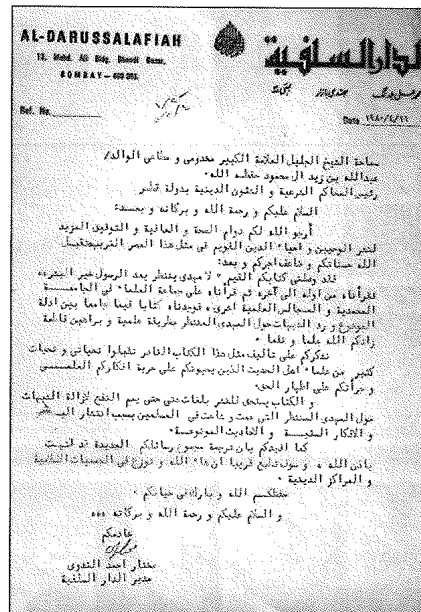 AL-DARUSSALAFIAH
13, Mohd. Ali Bldg. Bhendi Bazar,
BOMBAY - 400 003.
الدار السلفية
محمد علي بلڈنگ بھنڈی بازار بمبئی
Ref. No.
Date ١٩٨٠/٤/١٦
سماحة الشيخ الجليل العلامة الكبير مخدومي و مطاعي الوالد/
عبدالله بن زيد ال محمود حفظه الله.
رئيس المحاكم الشرعية و الشئون الدينية بدولة قطر
السلام عليكم و رحمة الله و بركاته و بعد:
أرجو الله لكم دوام الصحة و العافية و التوفيق المزيد
لنشر الوحيين و احياء الدين القويم في مثل هذا العصر الغريب تقبل
الله حسناتكم و ضاعف اجركم و بعد:
فقد وصلني كتابكم القيم "لا مهدي ينتظر بعد الرسول خير البشر"
فقرأناه من اوله الى آخره ثم قرأناه على جماعة العلماء في الجامعة
المحمدية و المجالس العلمية اخرى، فوجدناه كتابا قيما جامعا بين ادلة
الموضوع و رد الشبهات حول المهدي المنتظر بطريقة علمية و براهين قاطعة
زادكم الله علما و نفعا.
نشكركم على تاليف مثل هذا الكتاب النادر تقبلوا تحياتي و تحيات
كثير من علماء اهل الحديث الذين يحيونكم على حرية افكاركم
و جرأتكم على اظهار الحق.
و الكتاب يستحق للنشر بلغات شتى حتى يعم النفع لازالة الشبهات
حول المهدي المنتظر التي عمت و شاعت في المسلمين بسبب انتشار
و الافكار و الاحاديث الموضوعة.
كما افيدكم بان ترجمة مجموع رسائلكم الجديدة قد انتهت
باذن الله و سوف تطبع قريبا ان شاء الله و توزع في الجمعيات
و المراكز الدينية.
حفظكم الله و بارك في حياتكم.
و السلام عليكم و رحمة الله و بركاته
خادمكم
مختار احمد الندوي
مدير الدار السلفية